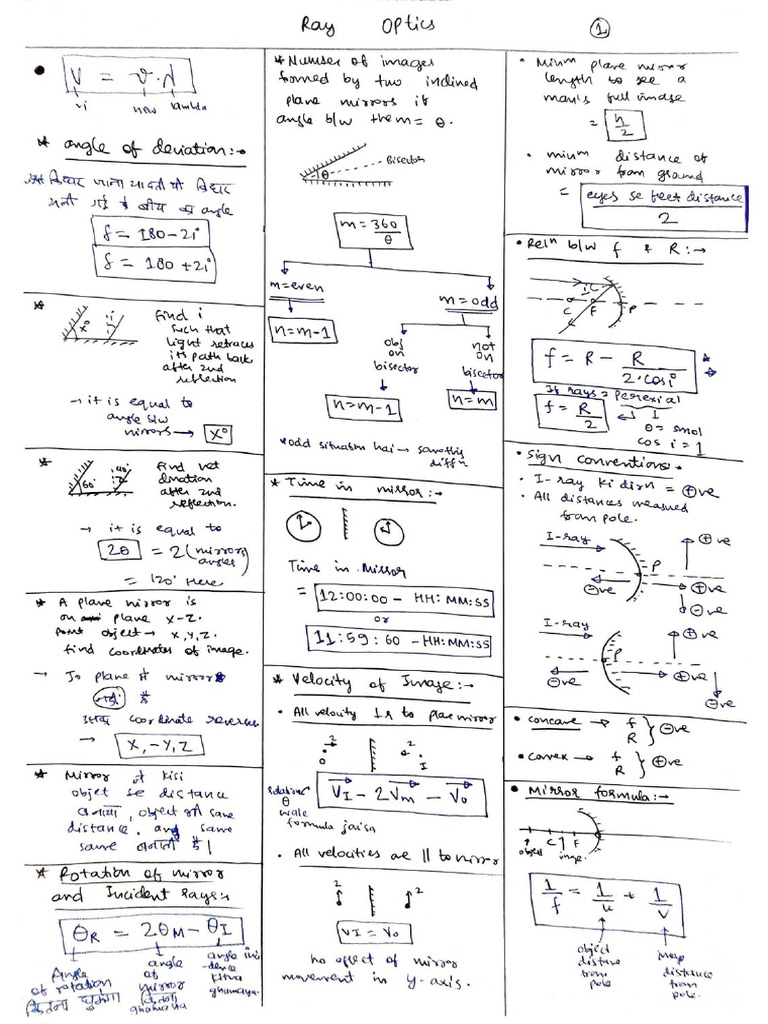 Ray Optics
1
V = ν·λ
vi new lambda
* angle of deviation:-
जाना चाहती थी
के बीच का angle
δ = 180 - 2i°
δ = 180 + 2i°
* x° i
Find i
such that
light retraces
its path back
after 2nd
reflection
→ it is equal to
angle b/w
mirrors → x°
* 60° 40°
Find net
deviation
after 2nd
reflection.
→ it is equal to
2θ = 2 (mirrors angles)
= 120° Here
* A plane mirror is
on plane X-Z.
Point object → X,Y,Z.
find coordinates of image.
→ Jo plane में mirror
नहीं है
उसका coordinate reverse
→ X, -Y, Z
* Mirror ने kisi
objet se distance
बनाया, object की same
distance. and same
same बनाती है 1
* Rotation of mirror
and Incident Rays:-
θR = 2θM - θI
Angle of rotation
कितना घुमेगा
angle of mirror
कितना ghumaya
angle incidence
kitna ghumaya.
* Number of images
formed by two inclined
plane mirrors if
angle b/w them = θ.
θ Bisector
m = 360/θ
m = even
n = m-1
m = odd
obj on bisector
n = m-1
not on bisector
n = m
*odd situation hai → something
diffn
* Time in mirror:-
Time in Mirror
= 12:00:00 - HH:MM:SS
or
11:59:60 - HH:MM:SS
* Velocity of Image:-
• All velocity ⊥s to plane mirror
2 O 2 I
rotation θ wale formula jaisa
VI - 2Vm - Vo
• All velocities are || to mirror
2 2
VI = Vo
no effect of mirror
movement in y-axis.
• Minm plane mirror
length to see a
man's full image
= h/2
• minm distance of
mirror from ground
= eyes se feet distance / 2
• Reln b/w f & R:→
i C F P
f = R - R/(2·cos i°)
If rays = Perexial
f = R/2
θ = smol
cos i = 1
• Sign conventions:-
• I-ray ki dirn = ⊕ve
• All distances measured
from pole.
I-ray ⊕ve
P
⊖ve ⊕ve
⊖ve
I-ray ⊕ve
P
⊖ve ⊕ve
⊖ve
• concave → f R } ⊖ve
• convex → f R } ⊕ve
• Mirror formula:→
object C F image.
1/f = 1/u + 1/v
object distane from pole
distance from pole.